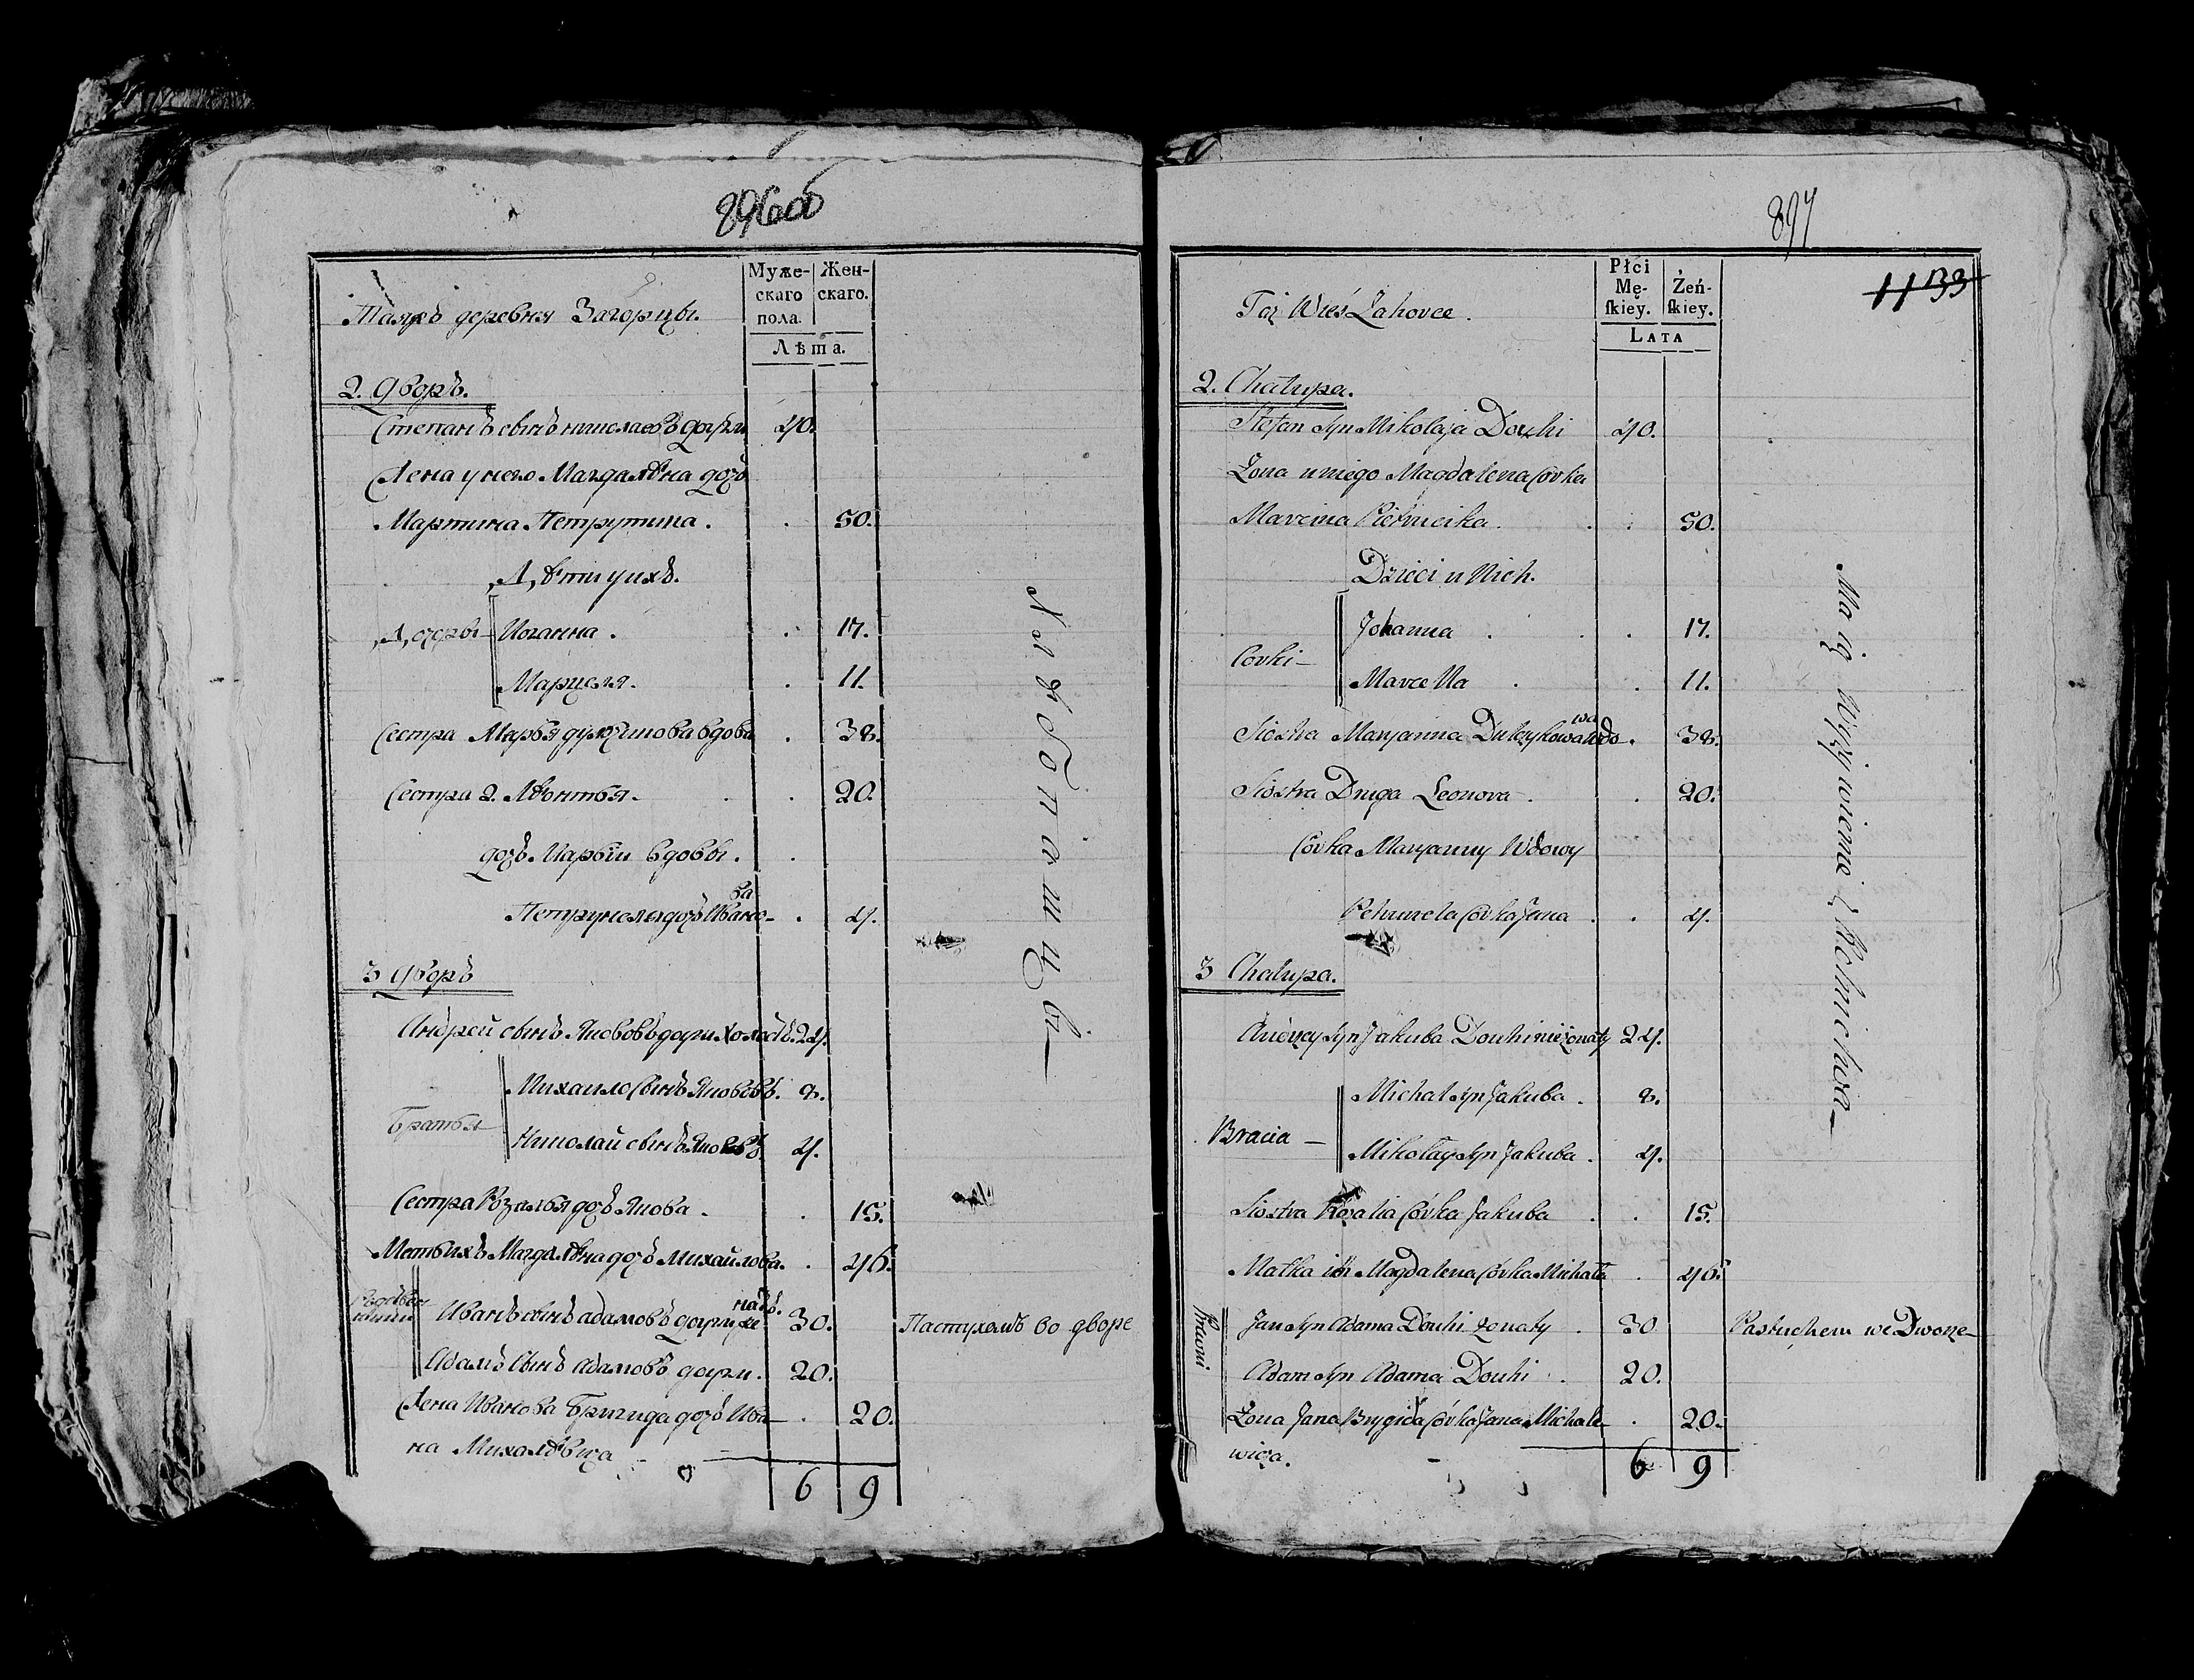 896об
Таяжъ деревня Загорцы.
Муже-
скаго
пола.
Жен-
скаго.
Лѣта.
2. Дворъ.
Степанъ сынъ николаевъ доуги 40.
Жена у него Магдалѣна дочь
Мартина Петрутика . 50.
Дѣти у ихъ.
Дочери Иоганна . 17.
Марцеля. 11.
Сестра Марья вдова 38.
Сестра 2. 20.
дочь Марьи вдовы.
Петрунеля дочь Ивано-
ва 4.
3 дворъ
Андрей сынъ Яковъ доуги Холостъ. 24.
Братья
Михаило сынъ Яковъ. 8.
Николай сынъ Яковъ 4.
Сестра Розалья дочь Якова . 15.
Мать ихъ Магдалѣна дочь Михайлова. 46.
Иванъ сынъ адамовъ доуги же-
натъ. 30. Пастухомъ во дворе
Адамъ сынъ адамовъ доуги. 20.
Жена Иванова Бригида дочь Ива- 20.
на Михалѣвича
6 9
Хлѣбопашцы
897
1133
Taż Wieś Zahorce.
Płci
Mę-
skiey.
Żeń-
skiey.
LATA
2. Chałupa.
Stefan syn Mikołaja Douhi 40.
Żona u niego Magdalena Córka
Marcina 50.
Dzieci u Nich.
Córki Johanna . 17.
Marcella . 11.
Siostra Maryanna wdo.
wa 38.
Siostra Druga Leonora . 20.
Córka Maryanny Wdowy
Petrunela Córka Jana . 4.
3 Chałupa.
Andrzey syn Jakuba Douhi nieżonaty 24.
Bracia
Michał syn Jakuba . 8.
Mikołay syn Jakuba . 4.
Siostra Rozalia Córka Jakuba . 15.
Matka ich Magdalena Córka Michała . 46.
Jan syn Adama Douhi żonaty . 30 Pastuchem we Dworze
Adam syn Adama Douhi . 20.
Żona Jana Brygida Córka Jana Michale- 20.
wicza.
6 9
Maią Wyżywienie z Rolnictwa